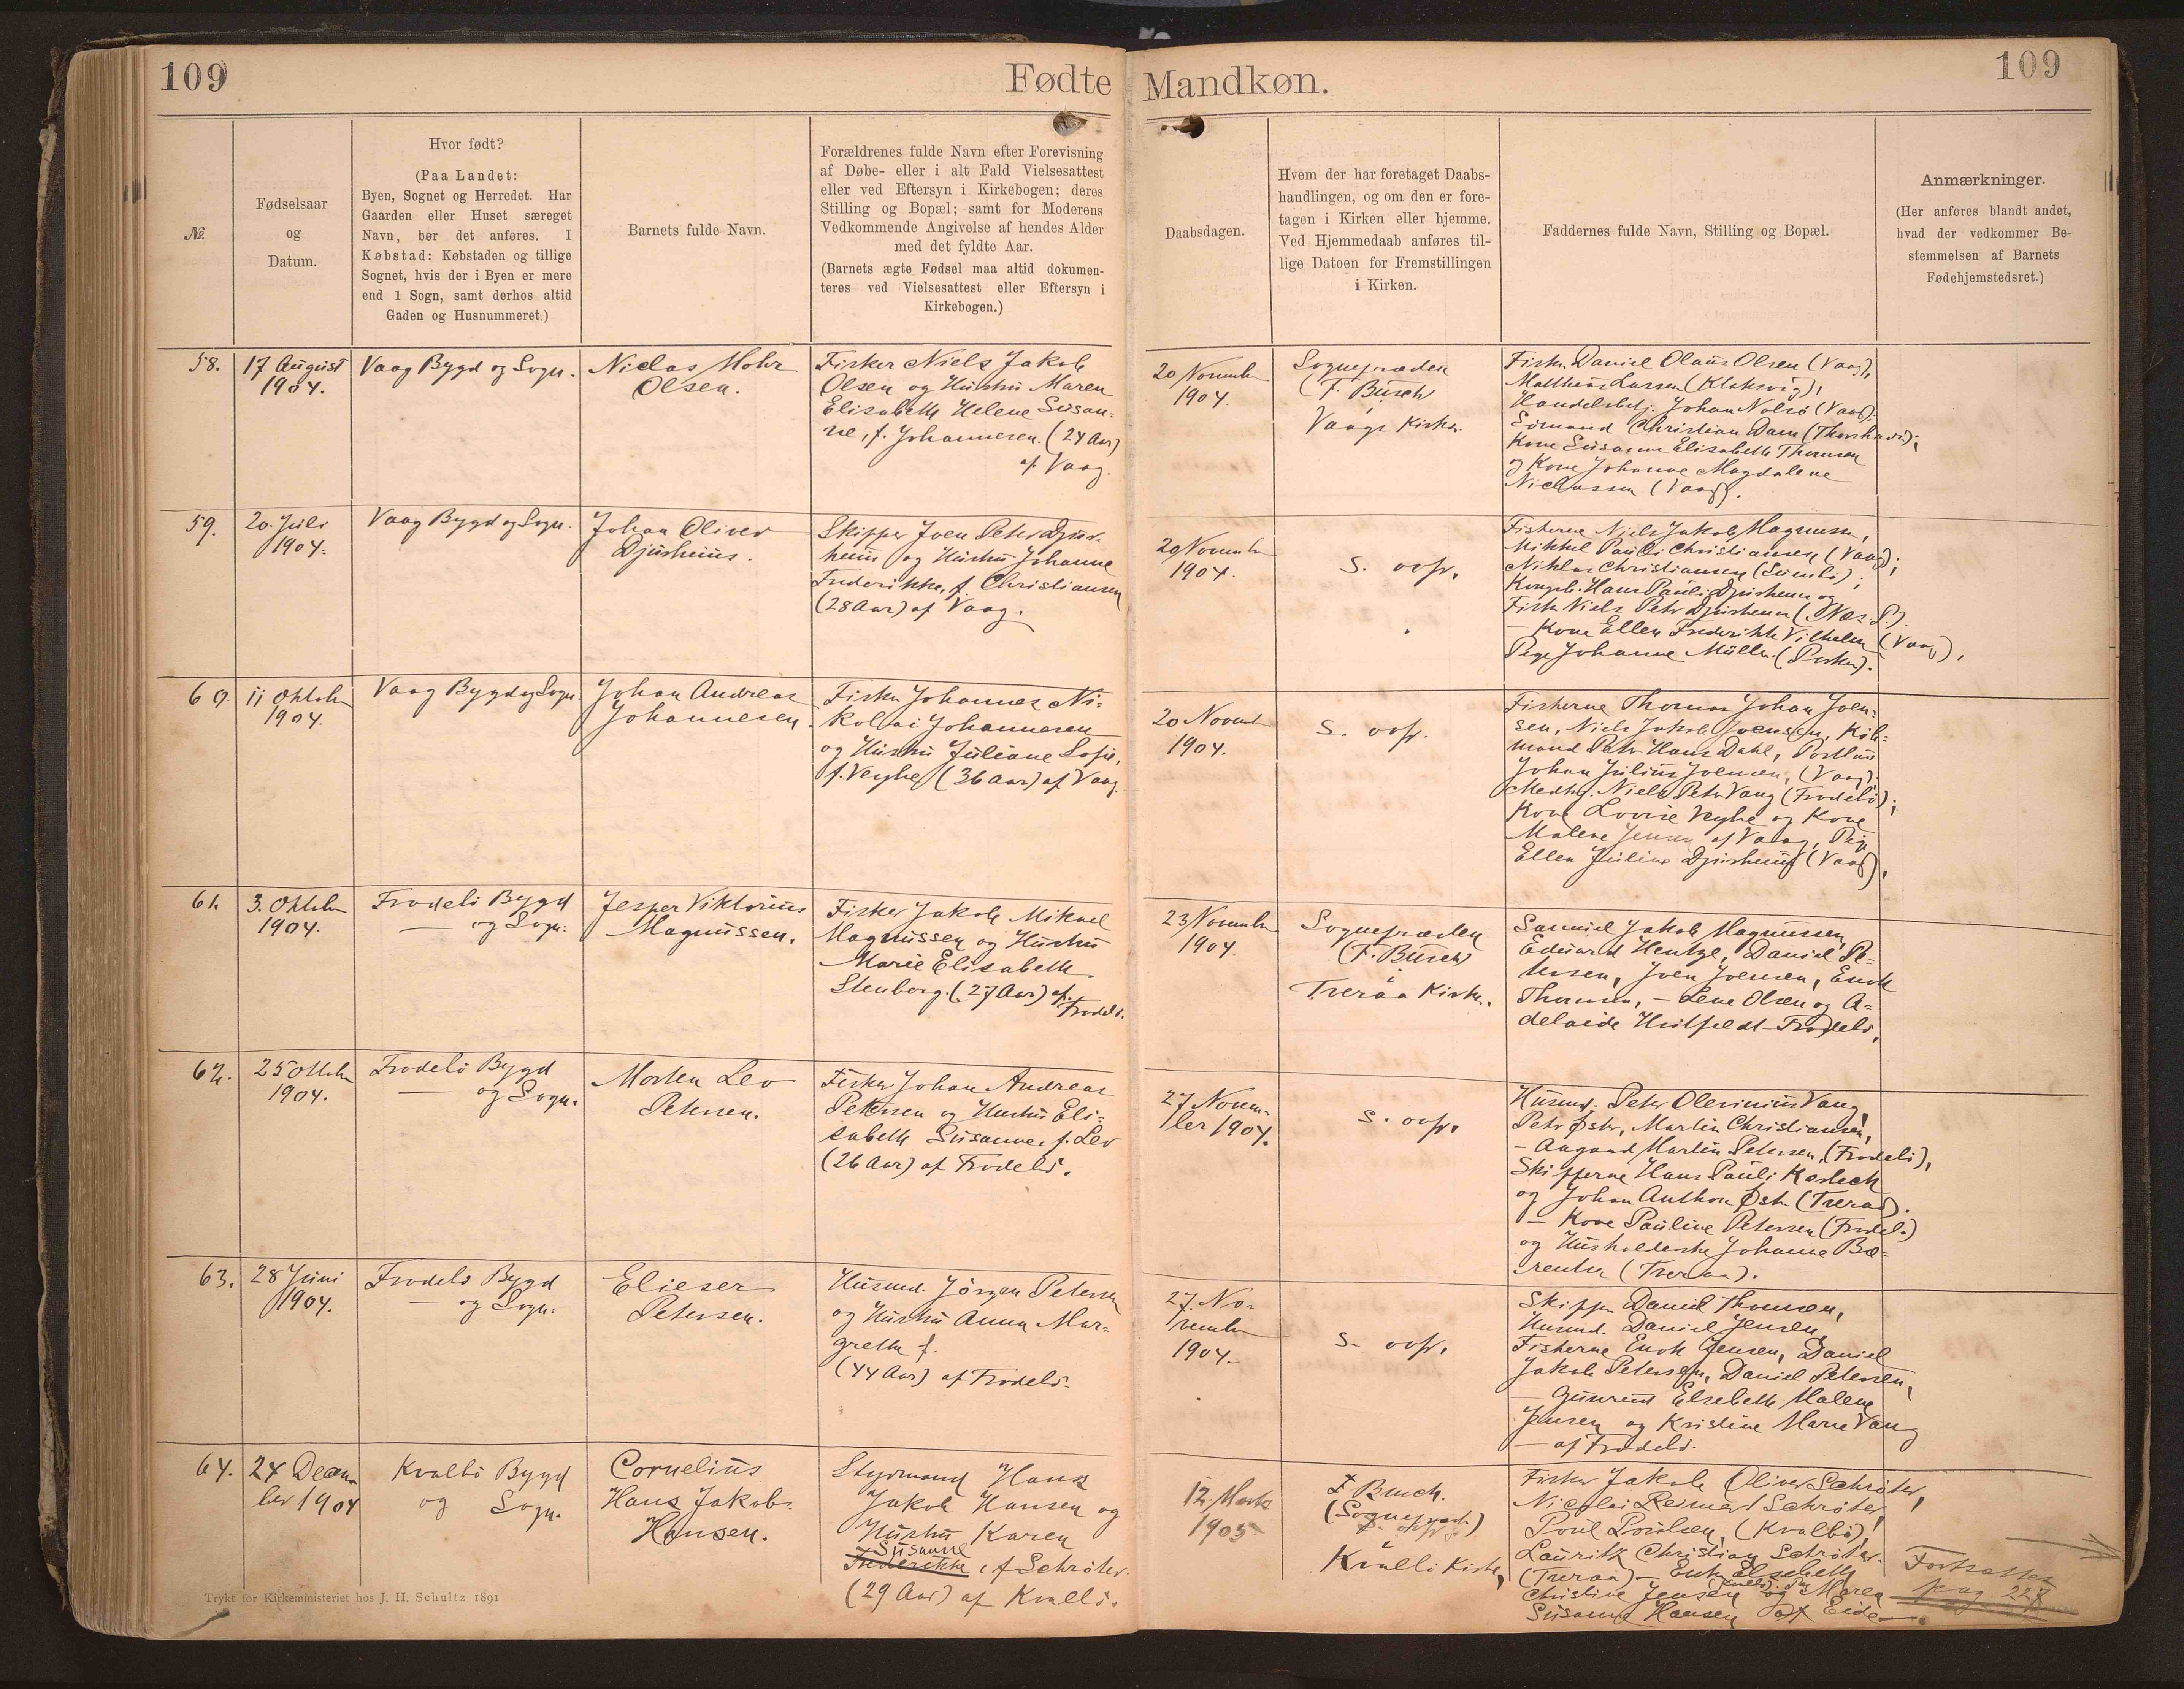 109
Fødte
Mandkøn.
109
№.
Fødselsaar
og
Datum.
Hvor født?
(Paa Landet:
Byen, Sognet og Herredet. Har
Gaarden eller Huset særeget
Navn, bør det anføres. I
Købstad: Købstaden og tillige
Sognet, hvis der i Byen er mere
end 1 Sogn, samt derhos altid
Gaden og Husnummeret.)
Barnets fulde Navn.
Forældrenes fulde Navn efter Forevisning
af Døbe- eller i alt Fald Vielsesattest
eller ved Eftersyn i Kirkebogen; deres
Stilling og Bopæl; samt for Moderens
Vedkommende Angivelse af hendes Alder
med det fyldte Aar.
(Barnets ægte Fødsel maa altid dokumen-
teres ved Vielsesattest eller Eftersyn i
Kirkebogen.)
Daabsdagen.
Hvem der har foretaget Daabs-
handlingen, og om den er fore-
tagen i Kirken eller hjemme.
Ved Hjemmedaab anføres til-
lige Datoen for Fremstillingen
i Kirken.
Faddernes fulde Navn, Stilling og Bopæl.
Anmærkninger.
(Her anføres blandt andet,
hvad der vedkommer Be-
stemmelsen af Barnets
Fødehjemstedsret.)
58.
17 August
1904.
Vaag Bygd og Sogn.
Niclas Mohr
Olsen.
Fisker Niels Jakob
Olsen og Hustru Maren
Elisabeth Helene Susan-
ne, f. Johannesen. (24 Aar)
af Vaag.
20 Novembr
1904.
Sognepræsten
(F. Busch)
i
Vaags Kirke.
Fiskr. Daniel Olaus Olsen (Vaag),
Matthias Larsen (Klaksvig),
Handelsbetj. Johan Nolsø (Vaag).
Edmund Christian Dam (Thorshavn);
Kone Susanne Elisabeth Thomsen
og Kone Johanne Magdalene
Niclassen (Vaag).
59.
20. Juli
1904.
Vaag Bygd og Sogn.
Johan Oliver
Djurhuus.
Skipper Joen Peter Djur-
huus og Hustru Johanne
Frederikke, f. Christiansen
(28 Aar) af Vaag.
20 Novemb
1904.
S. ovfr.
Fiskerne Niels Jakob Magnussen,
Mikkel Pauli Christiansen (Vaag);
Niklas Christiansen (Sumbø);
Kongsb. Hans Pauli Djurhuus og
Fiskr Niels Petr Djurhuus (Næs. S.).
— Kone Ellen Frederikke Vilhelm (Vaag),
Pige Johanne Müller (Porken).
60.
11 Oktobr
1904.
Vaag Bygd og Sogn.
Johan Andreas
Johannesen.
Fisker Johannes Ni-
kolai Johannesen
og Hustru Juliane Sofie,
f. Veyhe (36 Aar) af Vaag.
20 Novemb
1904.
S. ovfr.
Fiskerne Thomas Johan Joen-
sen, Niels Jakob Joensen, Køb-
mand Petr Hans Dahl,
Johan Julius Joensen, (Vaag);
Niels Petr Vang (Frodebø);
Kone Lovise Veyhe og Kone
Malene Jensen af Vaag, Pige
Ellen Juline Djurhuus (Vaag).
61.
3. Oktobr
1904.
Frodebø Bygd
— og Sogn.
Jesper Viktorius
Magnussen.
Fisker Jakob Mikael
Magnussen og Hustru
Marie Elisabeth
Stenberg. (27 Aar) af
Frodebø.
23 Novembr
1904.
Sognepræsten
(F. Busch)
i
Tveraa Kirke.
Samuel Jakob Magnussen,
Eduard Hentze, Daniel Pe-
tersen, Joen Joensen, Enok
Thomsen, — Lene Olsen og A-
delaide Huitfeldt Frodebø.
62.
25 Oktobr
1904.
Frodebø Bygd
— og Sogn.
Morten Lev
Petersen.
Fisker Johan Andreas
Petersen og Hustru Eli-
sabeth Susanne, f. Lev
(26 Aar) af Frodebø.
27 Novem-
ber 1904.
S. ovfr.
Husmd. Peter Olevinius Vang,
Petr Østr, Martin Christiansen,
— Aagaard Martin Petersen, (Frodebø),
Skipperne Hans Pauli
og Johan Anthon Østr (Tveraa).
— Kone Pauline Petersen (Frodebø)
og Husholderske Johanne Bæ-
rentsen (Tveraa).
63.
28 Juni
1904.
Frodebø Bygd
— og Sogn.
Elieser
Petersen.
Husmd. Jörgen Petersen
og Hustru Anna Mar-
grethe f.
(44 Aar) af Frodebø.
27. No-
vembr
1904.
S. ovfr.
Skippr Daniel Thomsen,
Husmd. Daniel Jensen,
Fiskerne Enok Jensen, Daniel
Jakob Petersen, Daniel Petersen,
— Elsebeth Malene
Jensen og Kristine Marie Vang
— af Frodebø.
64.
24 Decem-
ber 1904
Kvalbø Bygd
og Sogn.
Cornelius
Hans Jakob
Hansen.
Styrmand Hans
Jakob Hansen og
Hustru Karen
Susanne
Frederikke, f. Schrøter
(29 Aar) af Kvalbø.
12. Marts
1905
F. Busch.
(Sognepræst.)
i
Kvalbø Kirke,
Fisker Jakob Oliver Schrøter,
Nicolai Reinert Schrøter,
Poul Poulsen, (Kvalbø),
Lauritz Christian Schrøter.
(Tveraa) — Enke Elsebeth
Christine Jensen (Kvalbø) og Maren
Susanne Hansen af Eide
Fortsættes
pag 227
Trykt for Kirkeministeriet hos J. H. Schultz 1891